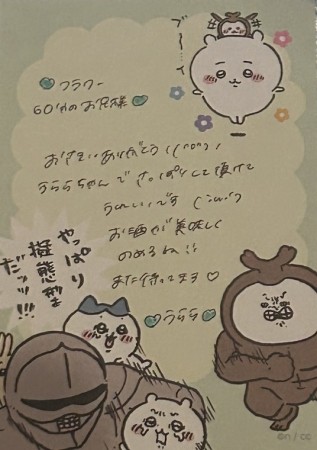 ブーー…ィ
フラワー
60分のお兄様
おさそいありがとう
うららちゃんでさっぱりして頂けて
うれしいです
お酒が美味しく
のめるね!!
また待ってます♡
うらら
やっぱり
擬態型
だッッ!!!
©n / cc